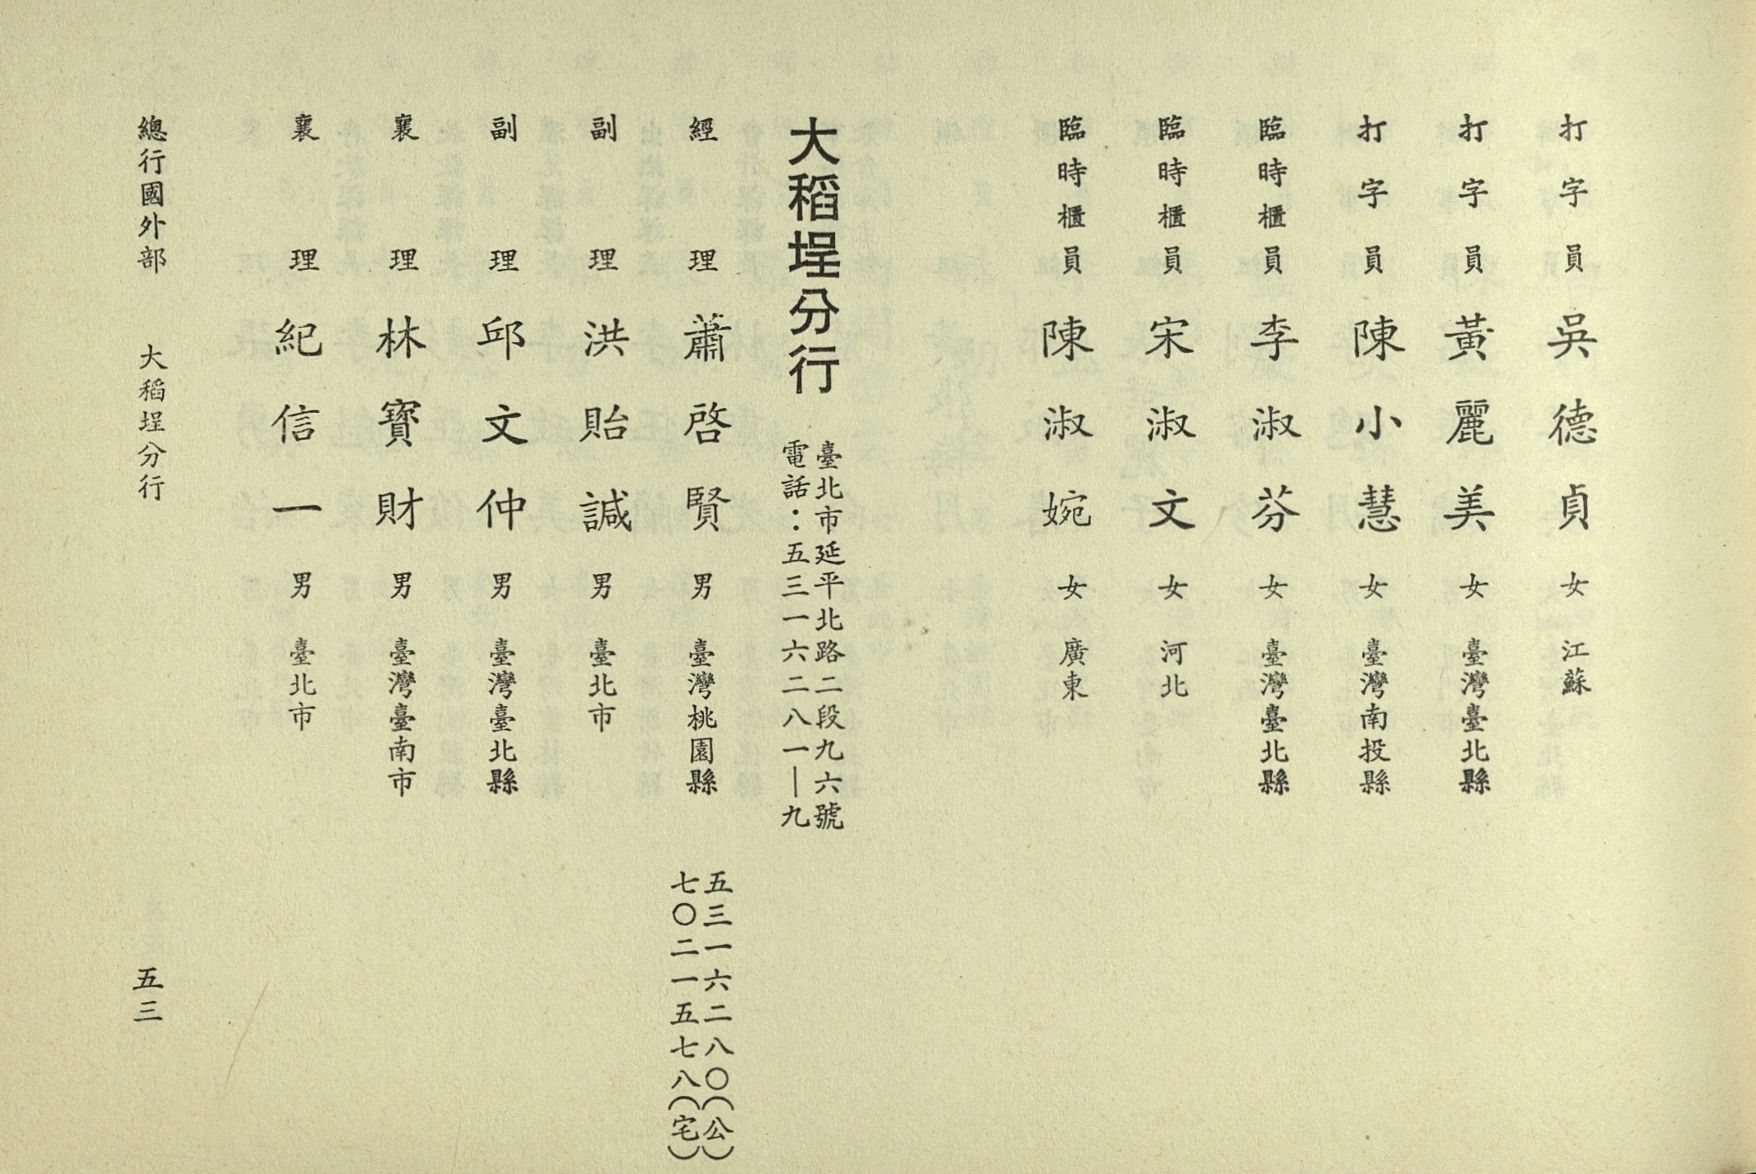 打字員 吳德貞 女 江蘇
打字員 黃麗美 女 臺灣臺北縣
打字員 陳小慧 女 臺灣南投縣
臨時櫃員 李淑芬 女 臺灣臺北縣
臨時櫃員 宋淑文 女 河北
臨時櫃員 陳淑婉 女 廣東
大稻埕分行
臺北市延平北路二段九六號
電話：五三一六二八一｜九
經理 蕭啓賢 男 臺灣桃園縣
五三一六二八〇（公）
七〇二一五七八（宅）
副理 洪貽誠 男 臺北市
副理 邱文仲 男 臺灣臺北縣
襄理 林寶財 男 臺灣臺南市
襄理 紀信一 男 臺北市
總行國外部 大稻埕分行
五三